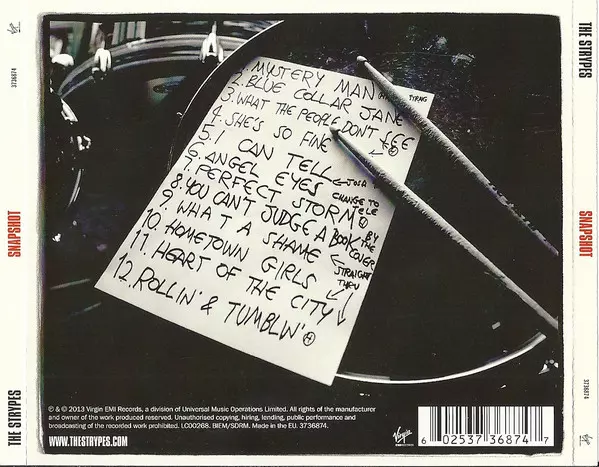 3736874
SNAPSHOT
THE STRYPES
1. MYSTERY MAN
2. BLUE COLLAR JANE
3. WHAT THE PEOPLE DON'T SEE
4. SHE'S SO FINE
5. I CAN TELL
6. ANGEL EYES
7. PERFECT STORM
8. YOU CAN'T JUDGE A BOOK BY THE COVER
9. WHAT A SHAME
10. HOMETOWN GIRLS
11. HEART OF THE CITY
12. ROLLIN' & TUMBLIN'
JOSH
CHANGE TO
TELE
STRAIGHT
THRU
℗ & © 2013 Virgin EMI Records, a division of Universal Music Operations Limited. All rights of the manufacturer
and owner of the work produced reserved. Unauthorised copying, hiring, lending, public performance and
broadcasting of the recorded work prohibited. LC00268. BIEM/SDRM. Made in the EU. 3736874.
WWW.THESTRYPES.COM
Virgin
6 02537 36874 7
THE STRYPES
SNAPSHOT
3736874